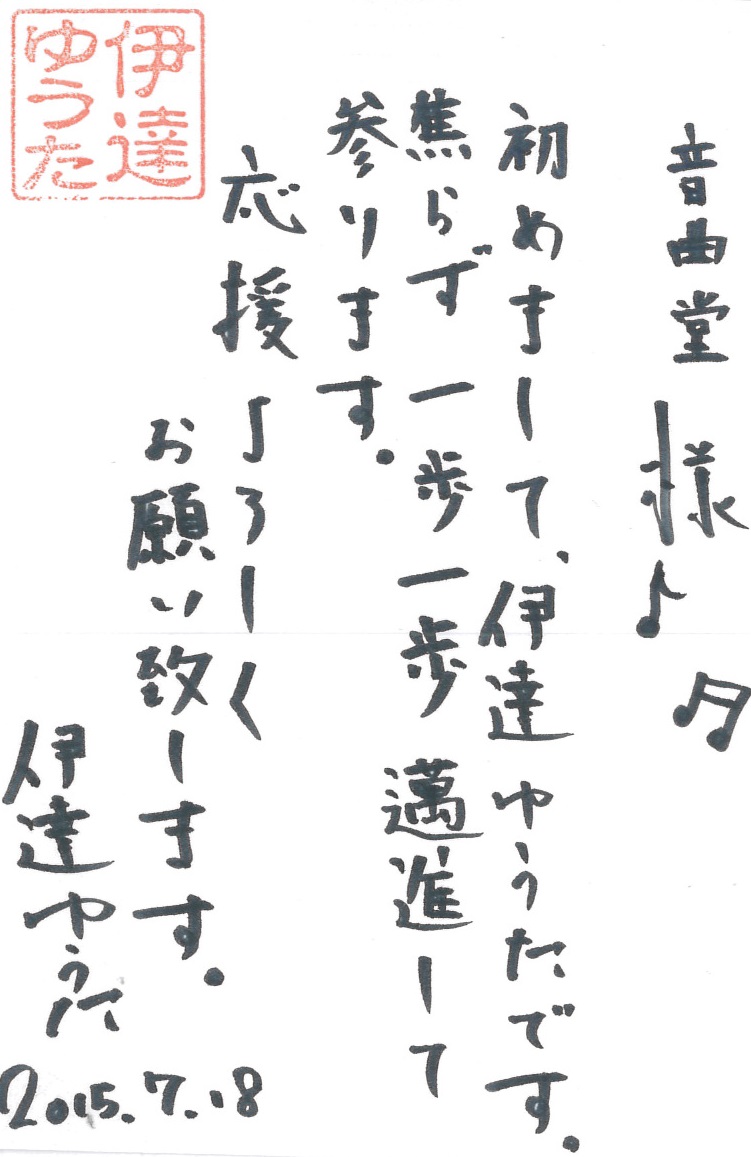 音曲堂 様♪ ♬
初めまして、伊達 ゆうたです。
焦らず 一歩一歩 邁進して
参ります。
応援 よろしく
お願い致します。
伊達 ゆうた
2015.7.18
伊達
ゆうた